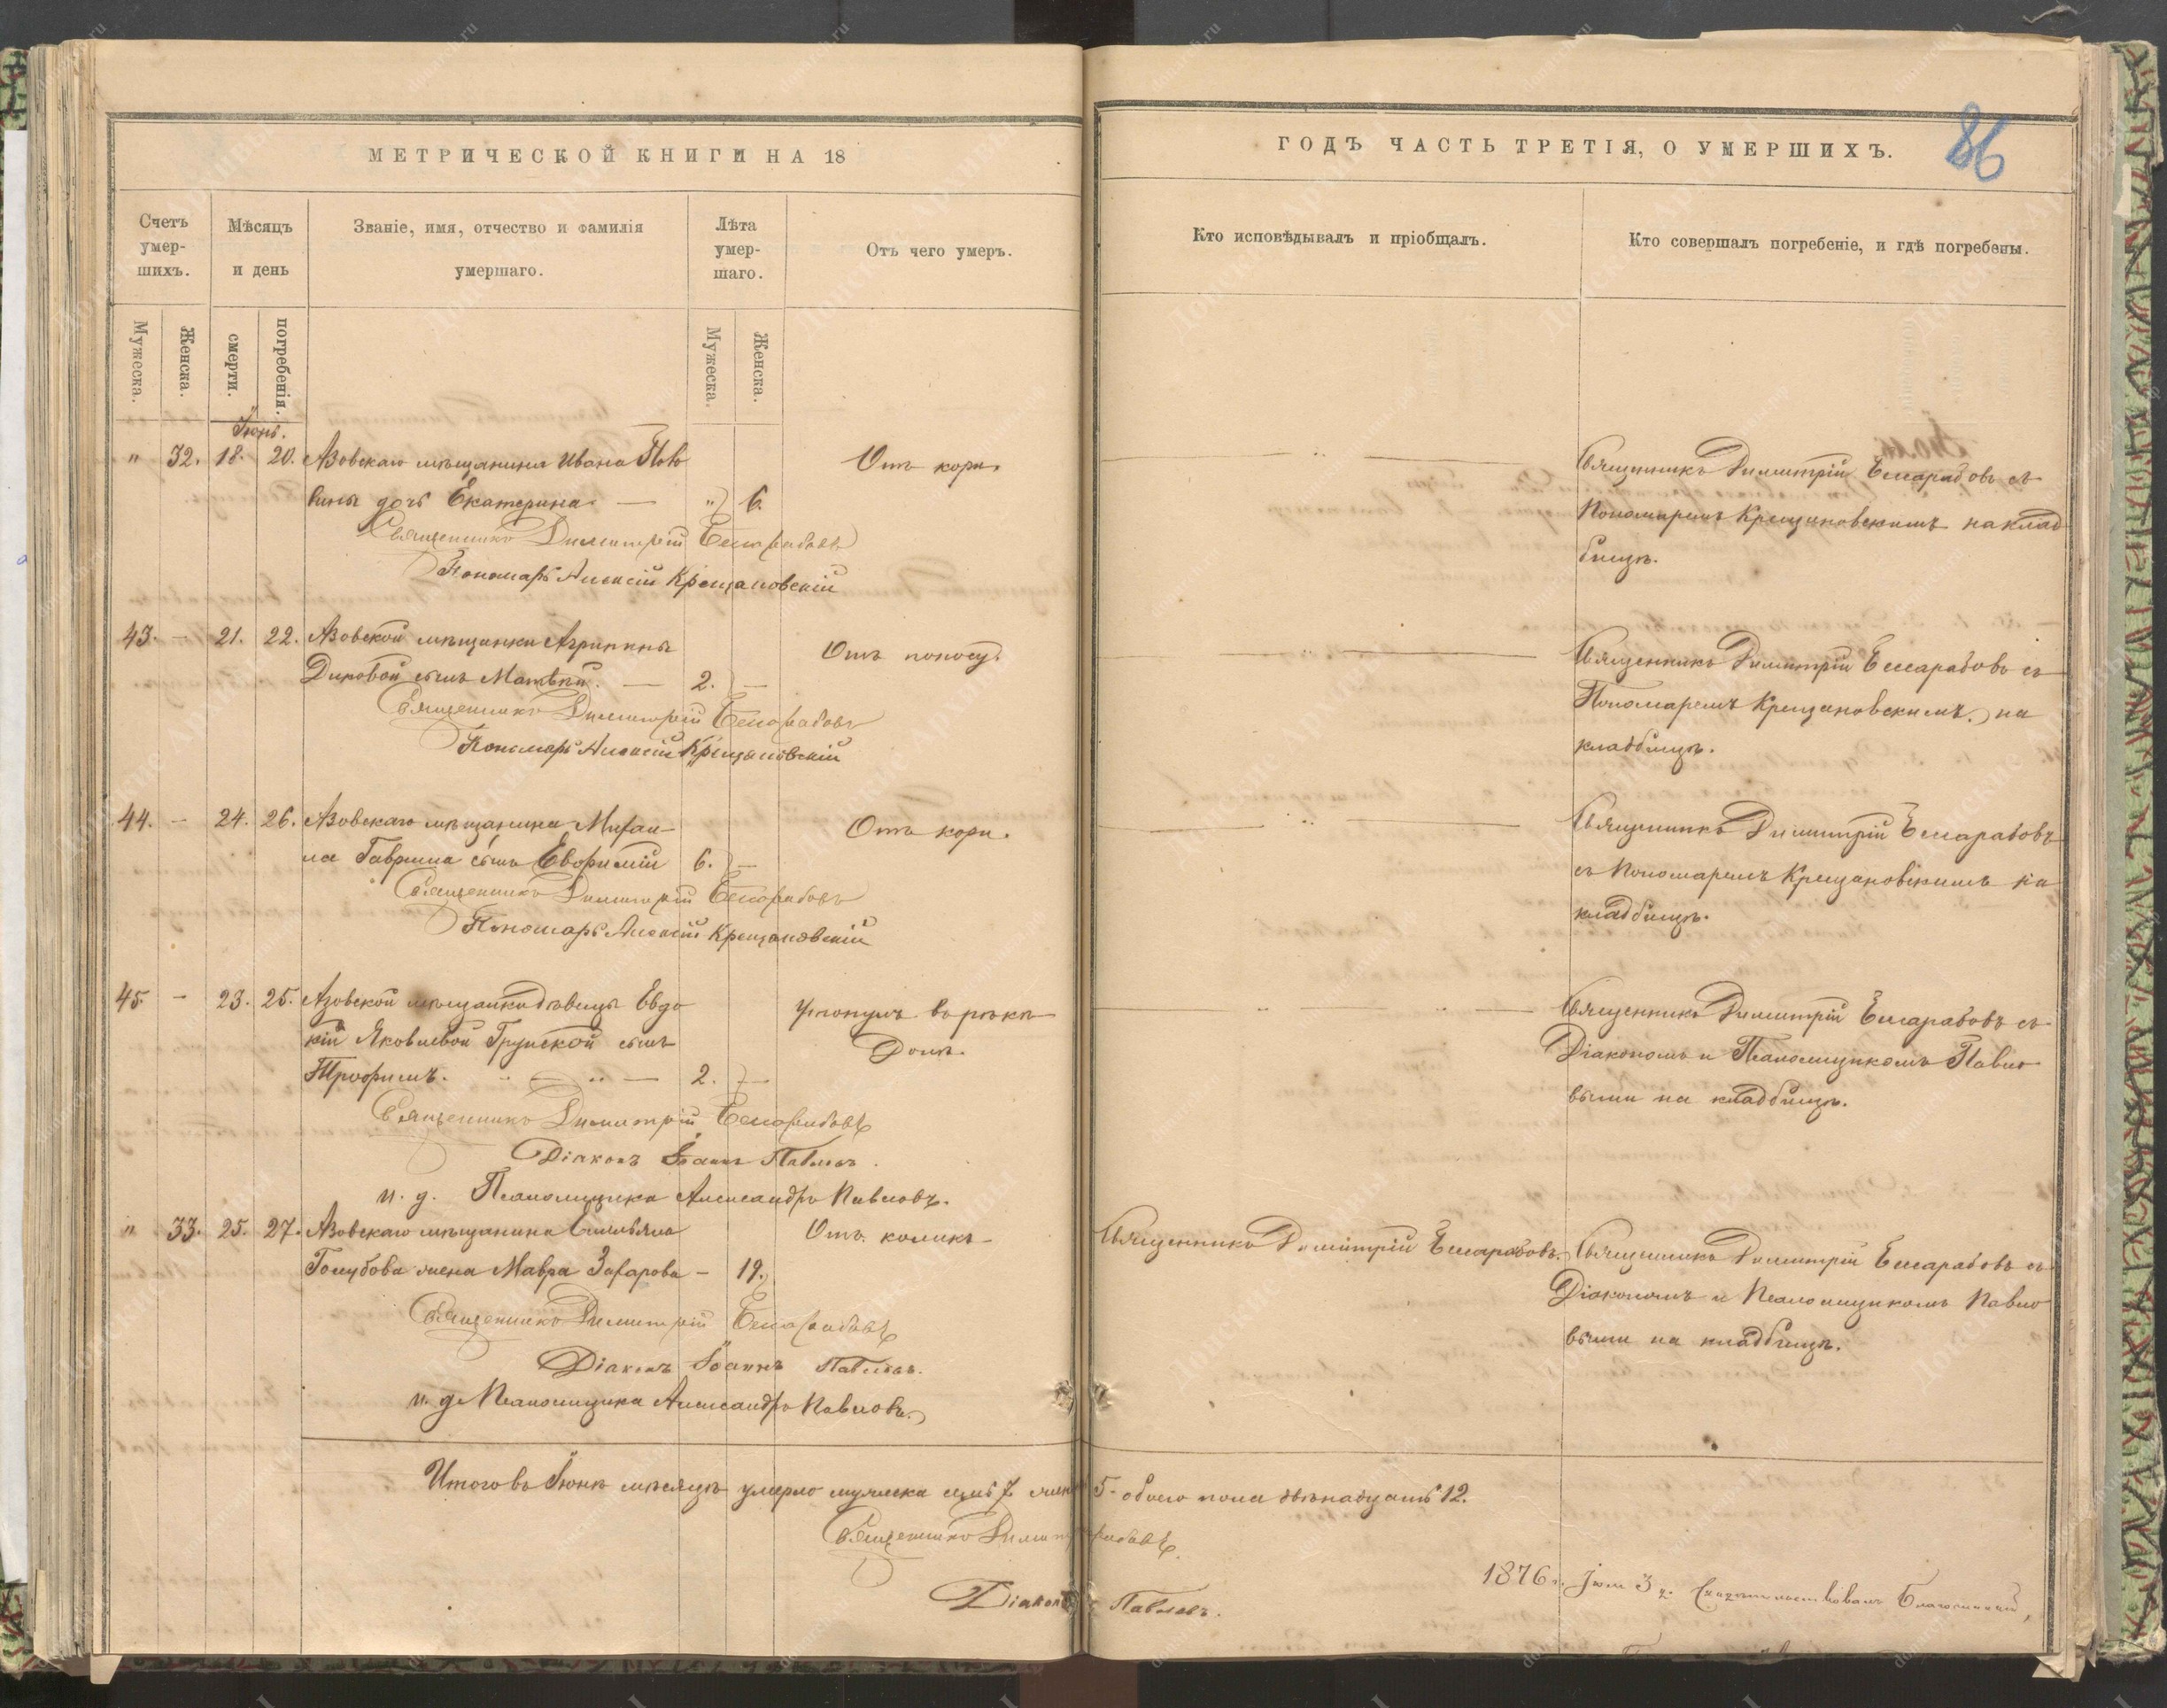 МЕТРИЧЕСКОЙ КНИГИ НА 18
ГОДЪ ЧАСТЬ ТРЕТІЯ, О УМЕРШИХЪ.
86
Счетъ умер-шихъ.
Мѣсяцъ и день
Званіе, имя, отчество и фамилія умершаго.
Лѣта умер-шаго.
Отъ чего умеръ.
Кто исповѣдывалъ и пріобщалъ.
Кто совершалъ погребеніе, и гдѣ погребены.
Мужеска.
Женска.
смерти.
погребенія.
Мужеска.
Женска.
Іюнь.
" 32. 18. 20. Азовскаго мѣщанина Ивана
дочь Екатерина — " 6.
Отъ кори.
Священникъ Димитрій Бессарабовъ съ
Пономаремъ Крещановскимъ на клад
бищѣ.
Священникъ Димитрій Бессарабовъ
Пономарь Алексій Крещановскій
43. — 21. 22. Азовской мѣщанки Агрипины
Диковой сынъ Матвѣй. — 2. —
Отъ поносу.
Священникъ Димитрій Бессарабовъ съ
Пономаремъ Крещановскимъ на
кладбищѣ.
Священникъ Димитрій Бессарабовъ
Пономарь Алексій Крещановскій
44. — 24. 26. Азовскаго мѣщанина Михаи-
ла Гаврина сынъ Евфимій 6. —
Отъ кори.
Священникъ Димитрій Бессарабовъ
съ Пономаремъ Крещановскимъ на
кладбищѣ.
Священникъ Димитрій Бессарабовъ
Пономарь Алексій Крещановскій
45. — 23. 25. Азовской мѣщанки дѣвицы Евдо
кіи Яковлевой сынъ
Трофимъ. — 2. —
Утонулъ въ рѣкѣ
Донъ.
Священникъ Димитрій Бессарабовъ съ
Діакономъ и Псаломщикомъ Павло
выми на кладбищѣ.
Священникъ Димитрій Бессарабовъ
Діаконъ Іоаннъ Павловъ.
и. д. Псаломщика Александръ Павловъ.
" 33. 25. 27. Азовскаго мѣщанина Емельяна
Голубова жена Мавра Захарова — 19.
Отъ коликъ
Священникъ Димитрій Бессарабовъ.
Священникъ Димитрій Бессарабовъ съ
Діакономъ и Псаломщикомъ Павло
выми на кладбищѣ.
Священникъ Димитрій Бессарабовъ
Діаконъ Іоаннъ Павловъ.
и. д. Псаломщика Александръ Павловъ.
Итого въ Іюнѣ мѣсяцѣ умерло мужеска семь 7 женс 5 — обоего пола двѣнадцать 12.
Священникъ Димит рабовъ.
Діаконъ Павловъ.
1876 г. Іюля 3 д. Свидѣтельствовалъ Благочинный,